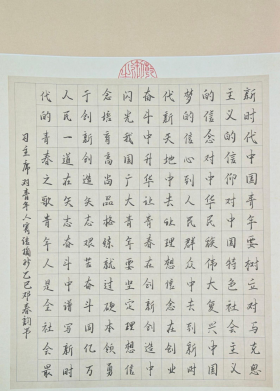 新时代中国青年要树立对马克思
主义的信仰对中国特色社会主义
的信念对中华民族伟大复兴中国
梦的信心到人民群众中去到新时
代新天地中去让理想信念在创业
奋斗中升华让青春在创新创造中
闪光我国广大青年要坚定理想信
念培育高尚品格练就过硬本领勇
于创新创造矢志艰苦奋斗同亿万
人民一道在矢志奋斗中谱写新时
代的青春之歌青年人是全社会最
习主席对青年人寄语摘抄乙巳邓春书